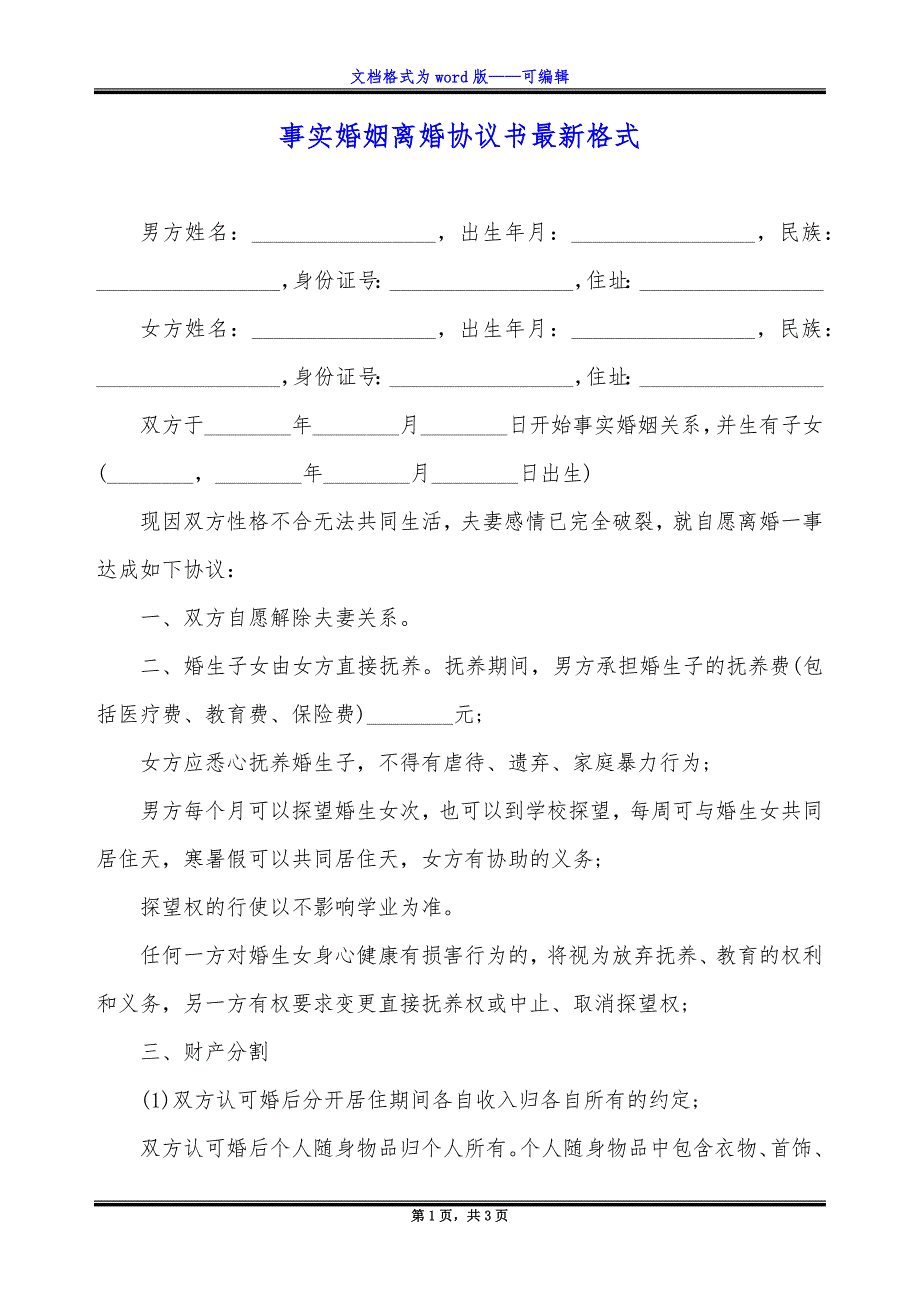 文档格式为 word 版——可编辑
事实婚姻离婚协议书最新格式
男方姓名：_________________，出生年月：_________________，民族：
_________________,身份证号:_________________,住址:_________________
女方姓名：_________________，出生年月：_________________，民族：
_________________,身份证号:_________________,住址:_________________
双方于________年________月________日开始事实婚姻关系,并生有子女
(________，________年________月________日出生)
现因双方性格不合无法共同生活，夫妻感情已完全破裂，就自愿离婚一事
达成如下协议：
一、双方自愿解除夫妻关系。
二、婚生子女由女方直接抚养。抚养期间，男方承担婚生子的抚养费(包
括医疗费、教育费、保险费)________元;
女方应悉心抚养婚生子，不得有虐待、遗弃、家庭暴力行为;
男方每个月可以探望婚生女次，也可以到学校探望，每周可与婚生女共同
居住天，寒暑假可以共同居住天，女方有协助的义务;
探望权的行使以不影响学业为准。
任何一方对婚生女身心健康有损害行为的，将视为放弃抚养、教育的权利
和义务，另一方有权要求变更直接抚养权或中止、取消探望权;
三、财产分割
(1)双方认可婚后分开居住期间各自收入归各自所有的约定;
双方认可婚后个人随身物品归个人所有。个人随身物品中包含衣物、首饰、
第 1 页，共 3 页